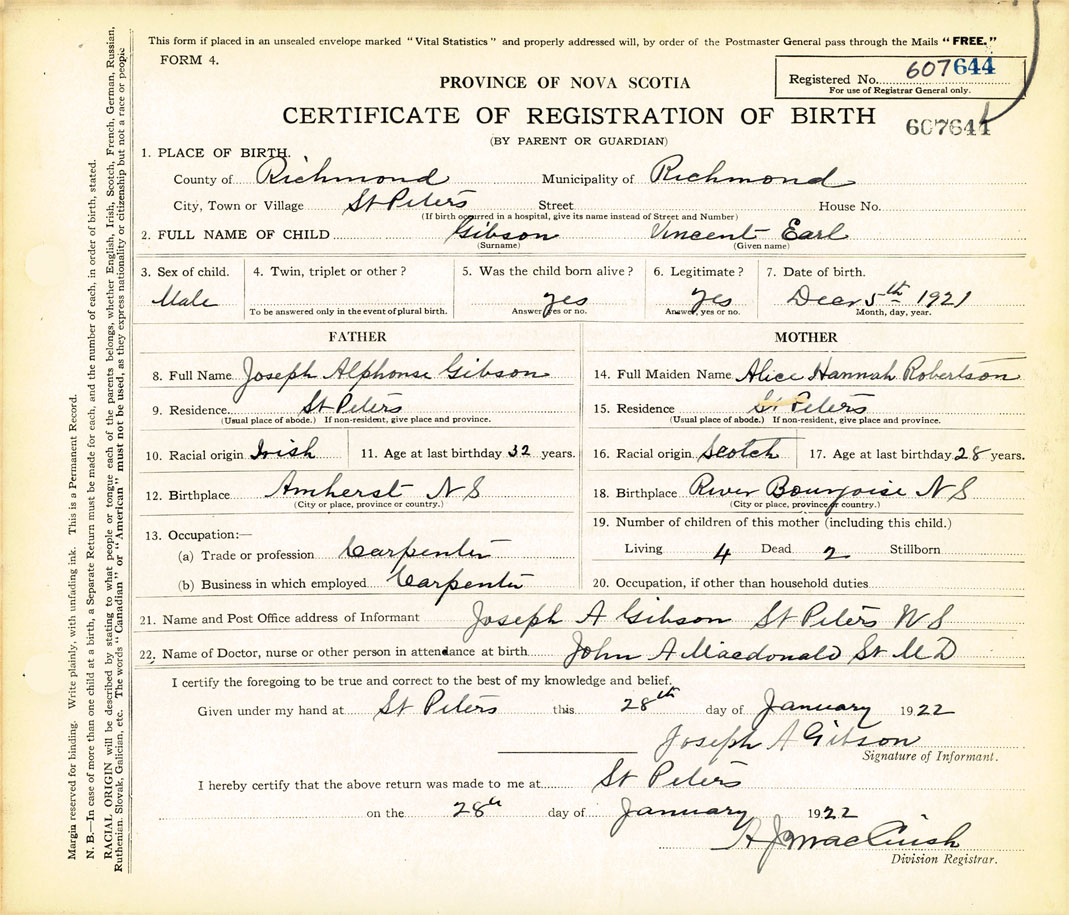 This form if placed in an unsealed envelope marked "Vital Statistics" and properly addressed will, by order of the Postmaster General pass through the Mails "FREE."
FORM 4.
Registered No. 607644
For use of Registrar General only.
PROVINCE OF NOVA SCOTIA
CERTIFICATE OF REGISTRATION OF BIRTH
607644
(BY PARENT OR GUARDIAN)
1. PLACE OF BIRTH.
County of Richmond Municipality of Richmond
City, Town or Village St Peters Street House No.
(If birth occurred in a hospital, give its name instead of Street and Number)
2. FULL NAME OF CHILD Gibson Vincent Earl
(Surname) (Given name)
3. Sex of child. 4. Twin, triplet or other? 5. Was the child born alive? 6. Legitimate? 7. Date of birth.
Male yes yes 5th 1921
To be answered only in the event of plural birth. Answer, yes or no. Answer, yes or no. Month, day, year.
FATHER MOTHER
8. Full Name Joseph Alphonse Gibson 14. Full Maiden Name Alice Hannah Robertson
9. Residence. St Peters 15. Residence St Peters
(Usual place of abode.) If non-resident, give place and province. (Usual place of abode.) If non-resident, give place and province.
10. Racial origin Irish 11. Age at last birthday 32 years. 16. Racial origin Scotch 17. Age at last birthday 28 years.
12. Birthplace Amherst N S 18. Birthplace River Bourgoise N S
(City or place, province or country.) (City or place, province or country.)
19. Number of children of this mother (including this child.)
13. Occupation:—
(a) Trade or profession Carpenter Living 4 Dead 2 Stillborn
(b) Business in which employed Carpenter 20. Occupation, if other than household duties
21. Name and Post Office address of Informant Joseph A Gibson St Peters N S
22. Name of Doctor, nurse or other person in attendance at birth John A Macdonald St M D
I certify the foregoing to be true and correct to the best of my knowledge and belief.
Given under my hand at St Peters this 28th day of January 1922
Joseph A Gibson
Signature of Informant.
I hereby certify that the above return was made to me at St Peters
on the 28th day of January 1922
Division Registrar.
Margin reserved for binding. Write plainly, with unfading ink. This is a Permanent Record.
N. B.—In case of more than one child at a birth, a Separate Return must be made for each, and the number of each, in order of birth, stated.
RACIAL ORIGIN will be described by stating to what people or tongue each of the parents belongs, whether English, Irish, Scotch, French, German, Russian,
Ruthenian, Slovak, Galician, etc. The words "Canadian" or "American" must not be used, as they express nationality or citizenship but not a race or people